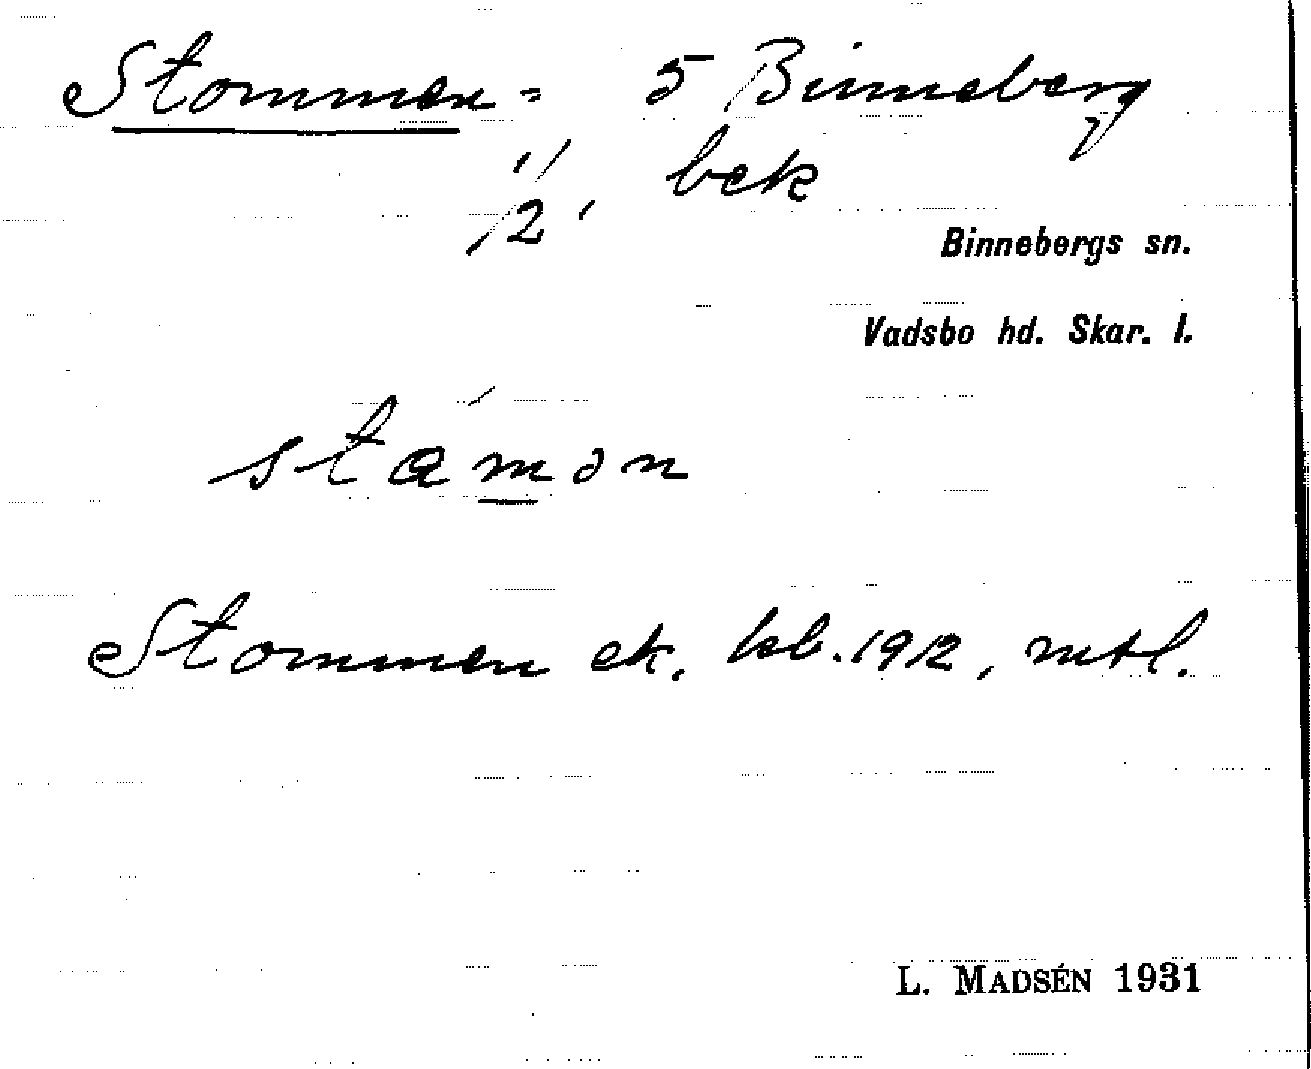 Stommen = 5 Binneberg
" bek
/2'
Binnebergs sn.
Vadsbo hd. Skar. l.
stámən
Stommen ek. kb. 1912, mtl.
L. MADSÉN 1931